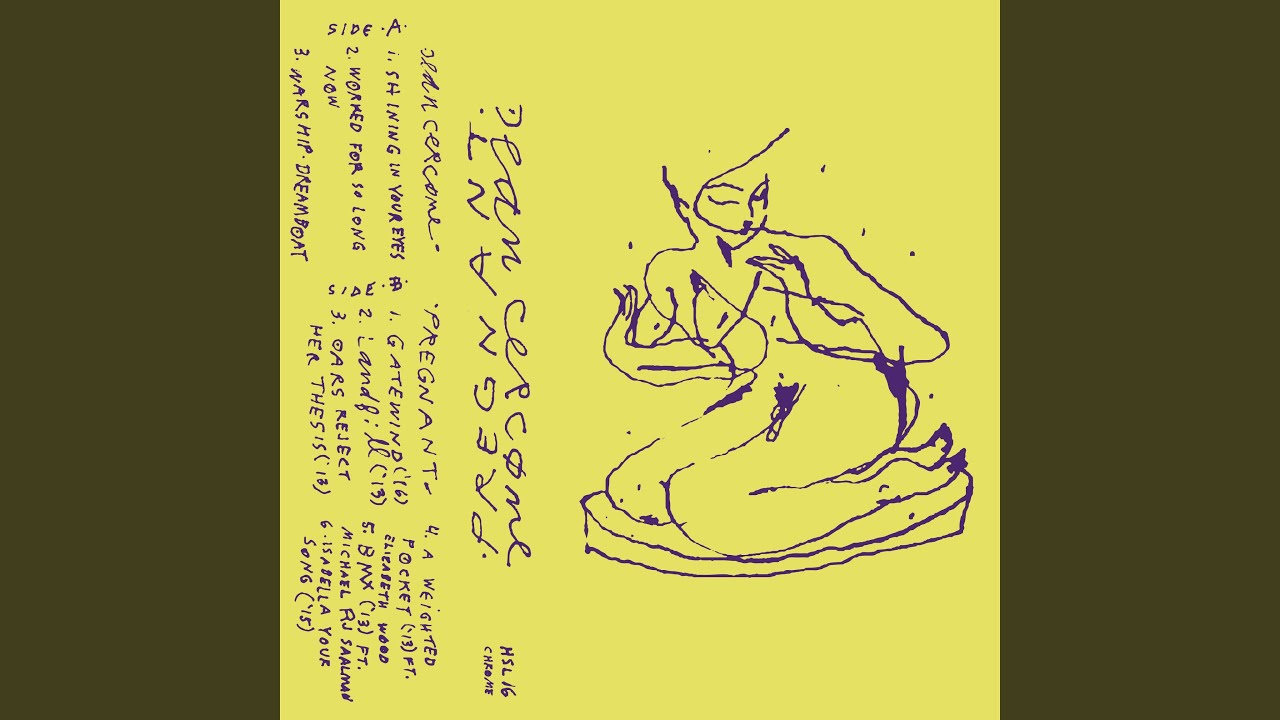 Dean Cercone
·PREGNANT·
HSL16
CHROME
SIDE ·A·
Dean Cercone-
1. SHINING IN YOUR EYES
2. WORKED FOR SO LONG
NOW
3. WARSHIP·DREAMBOAT
SIDE ·B
·PREGNANT-
1. GATEWIND ('16)
2. Landfill ('13)
3. OARS REJECT
HER THESIS ('13)
4. A WEIGHTED
POCKET ('13) FT.
ELIZABETH WOOD
5. BMX ('13) FT.
MICHAEL RJ SAALMAN
6. ISABELLA YOUR
SONG ('15)